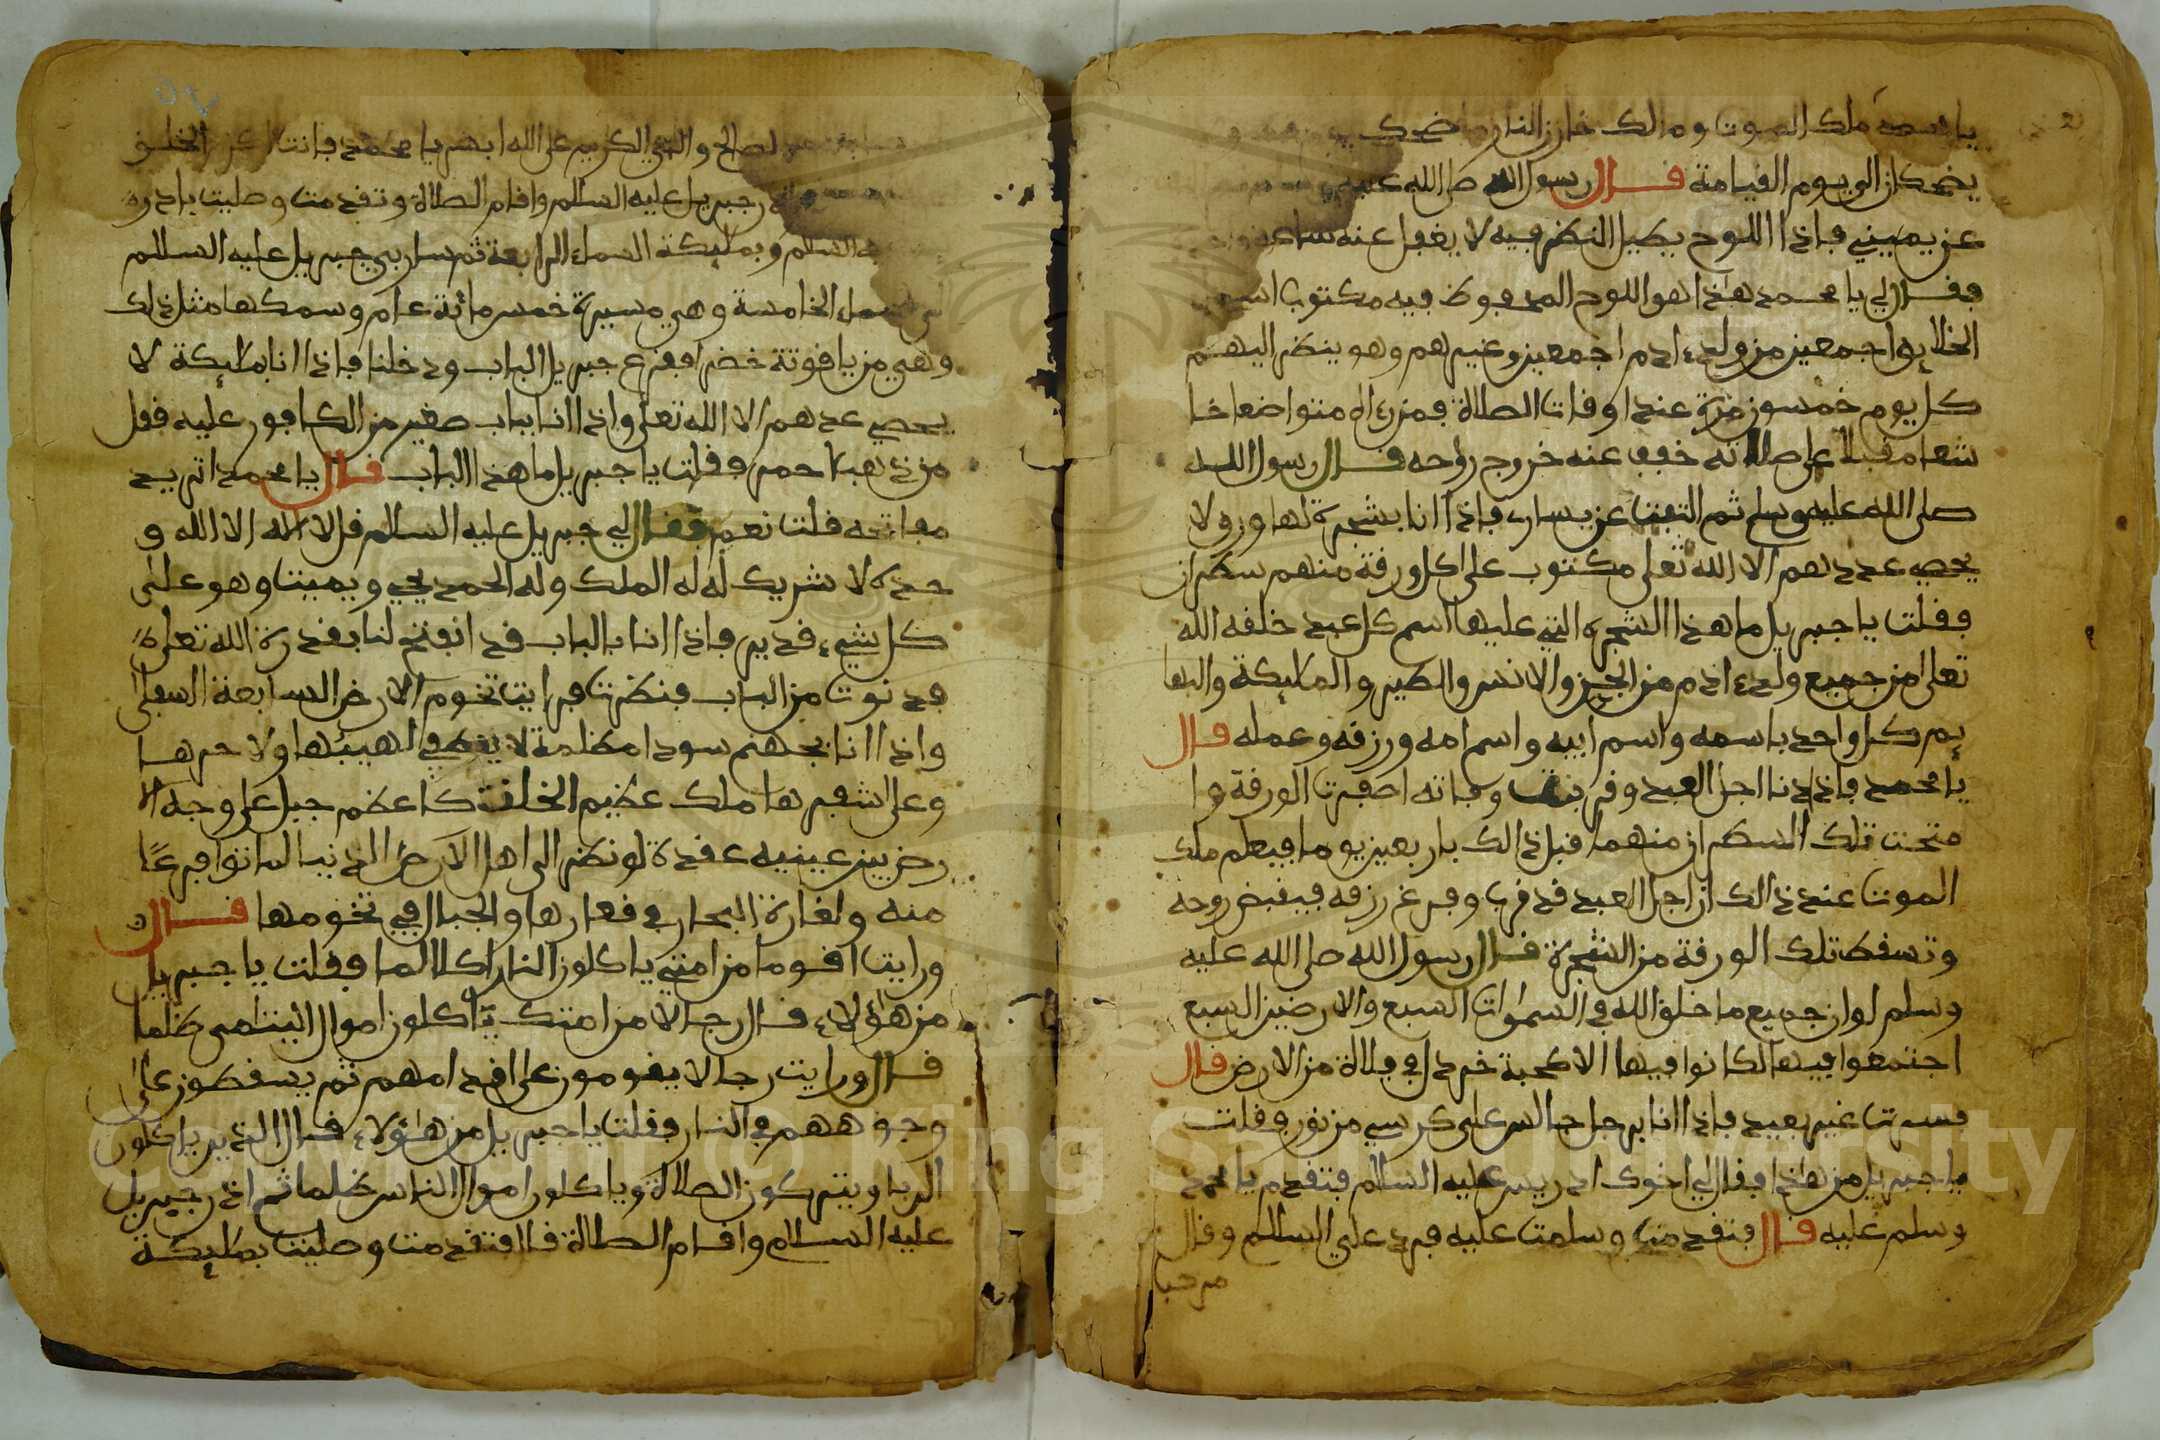 يا محمد ملك الموت ومالك خازن النار ما ضحك
يضحكان الى يوم القيامة قال رسول الله صلى الله عليه
عن يميني فاذا اللوح يطيل النظر فيه لا يغفل عنه ساعة
فقال لي يا محمد هذا هو اللوح المحفوظ فيه مكتوب اسم
الخلايق اجمعين من ولد ءادم اجمعين وغيرهم وهو ينظر اليهم
كل يوم خمسون مرة عند اوقات الصلاة فمن رءاه متواضعا خا
شعا مقبلا على صلاته خفف عنه خروج روحه قال رسول الله
صلى الله عليه وسلم ثم التفت عن يساري فاذا انا بشجرة لها ورق لا
يحصي عددهم الا الله تعلى مكتوب على كل ورقة منهم سطران
فقلت يا جبريل ما هذا الشجرة التي عليها اسم كل عبد خلقه الله
تعلى من جميع ولد ءادم من الجن والانس والطير والمليكة والبها
يم كل واحد باسمه واسم ابيه واسم امه ورزقه وعمله قال
يا محمد فاذا دنا اجل العبد وقربت وفاته اصفرت الورقة وا
متحت تلك السطران منهما قبل ذالك باربعين يوما فيعلم ملك
الموت عند ذالك ان اجل العبد قد قرب وفرغ رزقه فيقبض روحه
وتسقط تلك الورقة من الشجرة قال رسول الله صلى الله عليه
وسلم لو ان جميع ما خلق الله في السموات السبع والارضين السبع
اجتمعوا فيها لكانوا فيها الا كحبة خردل في فلاة من الارض قال
فسرت غير بعيد فاذا انا برجل جالس على كرسي من نور فقلت
يا جبريل من هذا فقال لي اخوك ادريس عليه السلام فتقدم يا محمد
وسلم عليه قال فتقدمت وسلمت عليه فرد علي السلام وقال
مرحبا
الصالح والنبي الكريم على الله ابشر يا محمد فانت اكرم الخلق
جبريل عليه السلام واقام الصلاة وتقدمت وصليت بادري
عليه السلم وبمليكة السماء الرابعة ثم سار بي جبريل عليه السلام
الى السماء الخامسة وهي مسيرة خمس مائة عام وسمكها مثل ذلك
وهي من ياقوتة خضرا فقرع جبريل الباب ودخلنا فاذا انا بمليكة لا
يحصي عددهم الا الله تعلى واذا انا بباب صغير من الكافور عليه قفل
من ذهب احمر فقلت يا جبريل ما هذا الباب قال يا محمد اتريد
مفاتحه قلت نعم فقال لي جبريل عليه السلام قل لا اله الا الله و
حده لا شريك له له الملك وله الحمد يحي ويميت وهو على
كل شيء قدير فاذا انا بالباب قد انفتح لنا بقدرة الله تعلى
فدنوت من الباب فنظرت فرايت تخوم الارض السابعة السفلى
واذا انا بجهنم سودا مظلمة لا يطفي لهيبها ولا حرها
وعلى شفيرها ملك عظيم الخلقة كاعظم جبل على وجه الا
رض بين عينيه عقدة لو نظر الى اهل الارض الدنيا لماتوا فزعا
منه ولغارة البحار في قعارها والجبال في تخومها قال
ورايت اقوما من امتي ياكلون النار اكلا لما فقلت يا جبريل
من هؤلاء قال رجالا من امتك ياكلون اموال اليتامى ظلما
قال ورايت رجالا يقومون على اقدامهم ثم يسقطون على
وجوههم في النار فقلت يا جبريل من هؤلاء قال الذين ياكلون
الربا ويتركون الصلاة وياكلون اموال الناس ظلما ثم اذن جبريل
عليه السلام واقام الصلاة قال فتقدمت وصليت بمليكة
Copyright © King Saud University